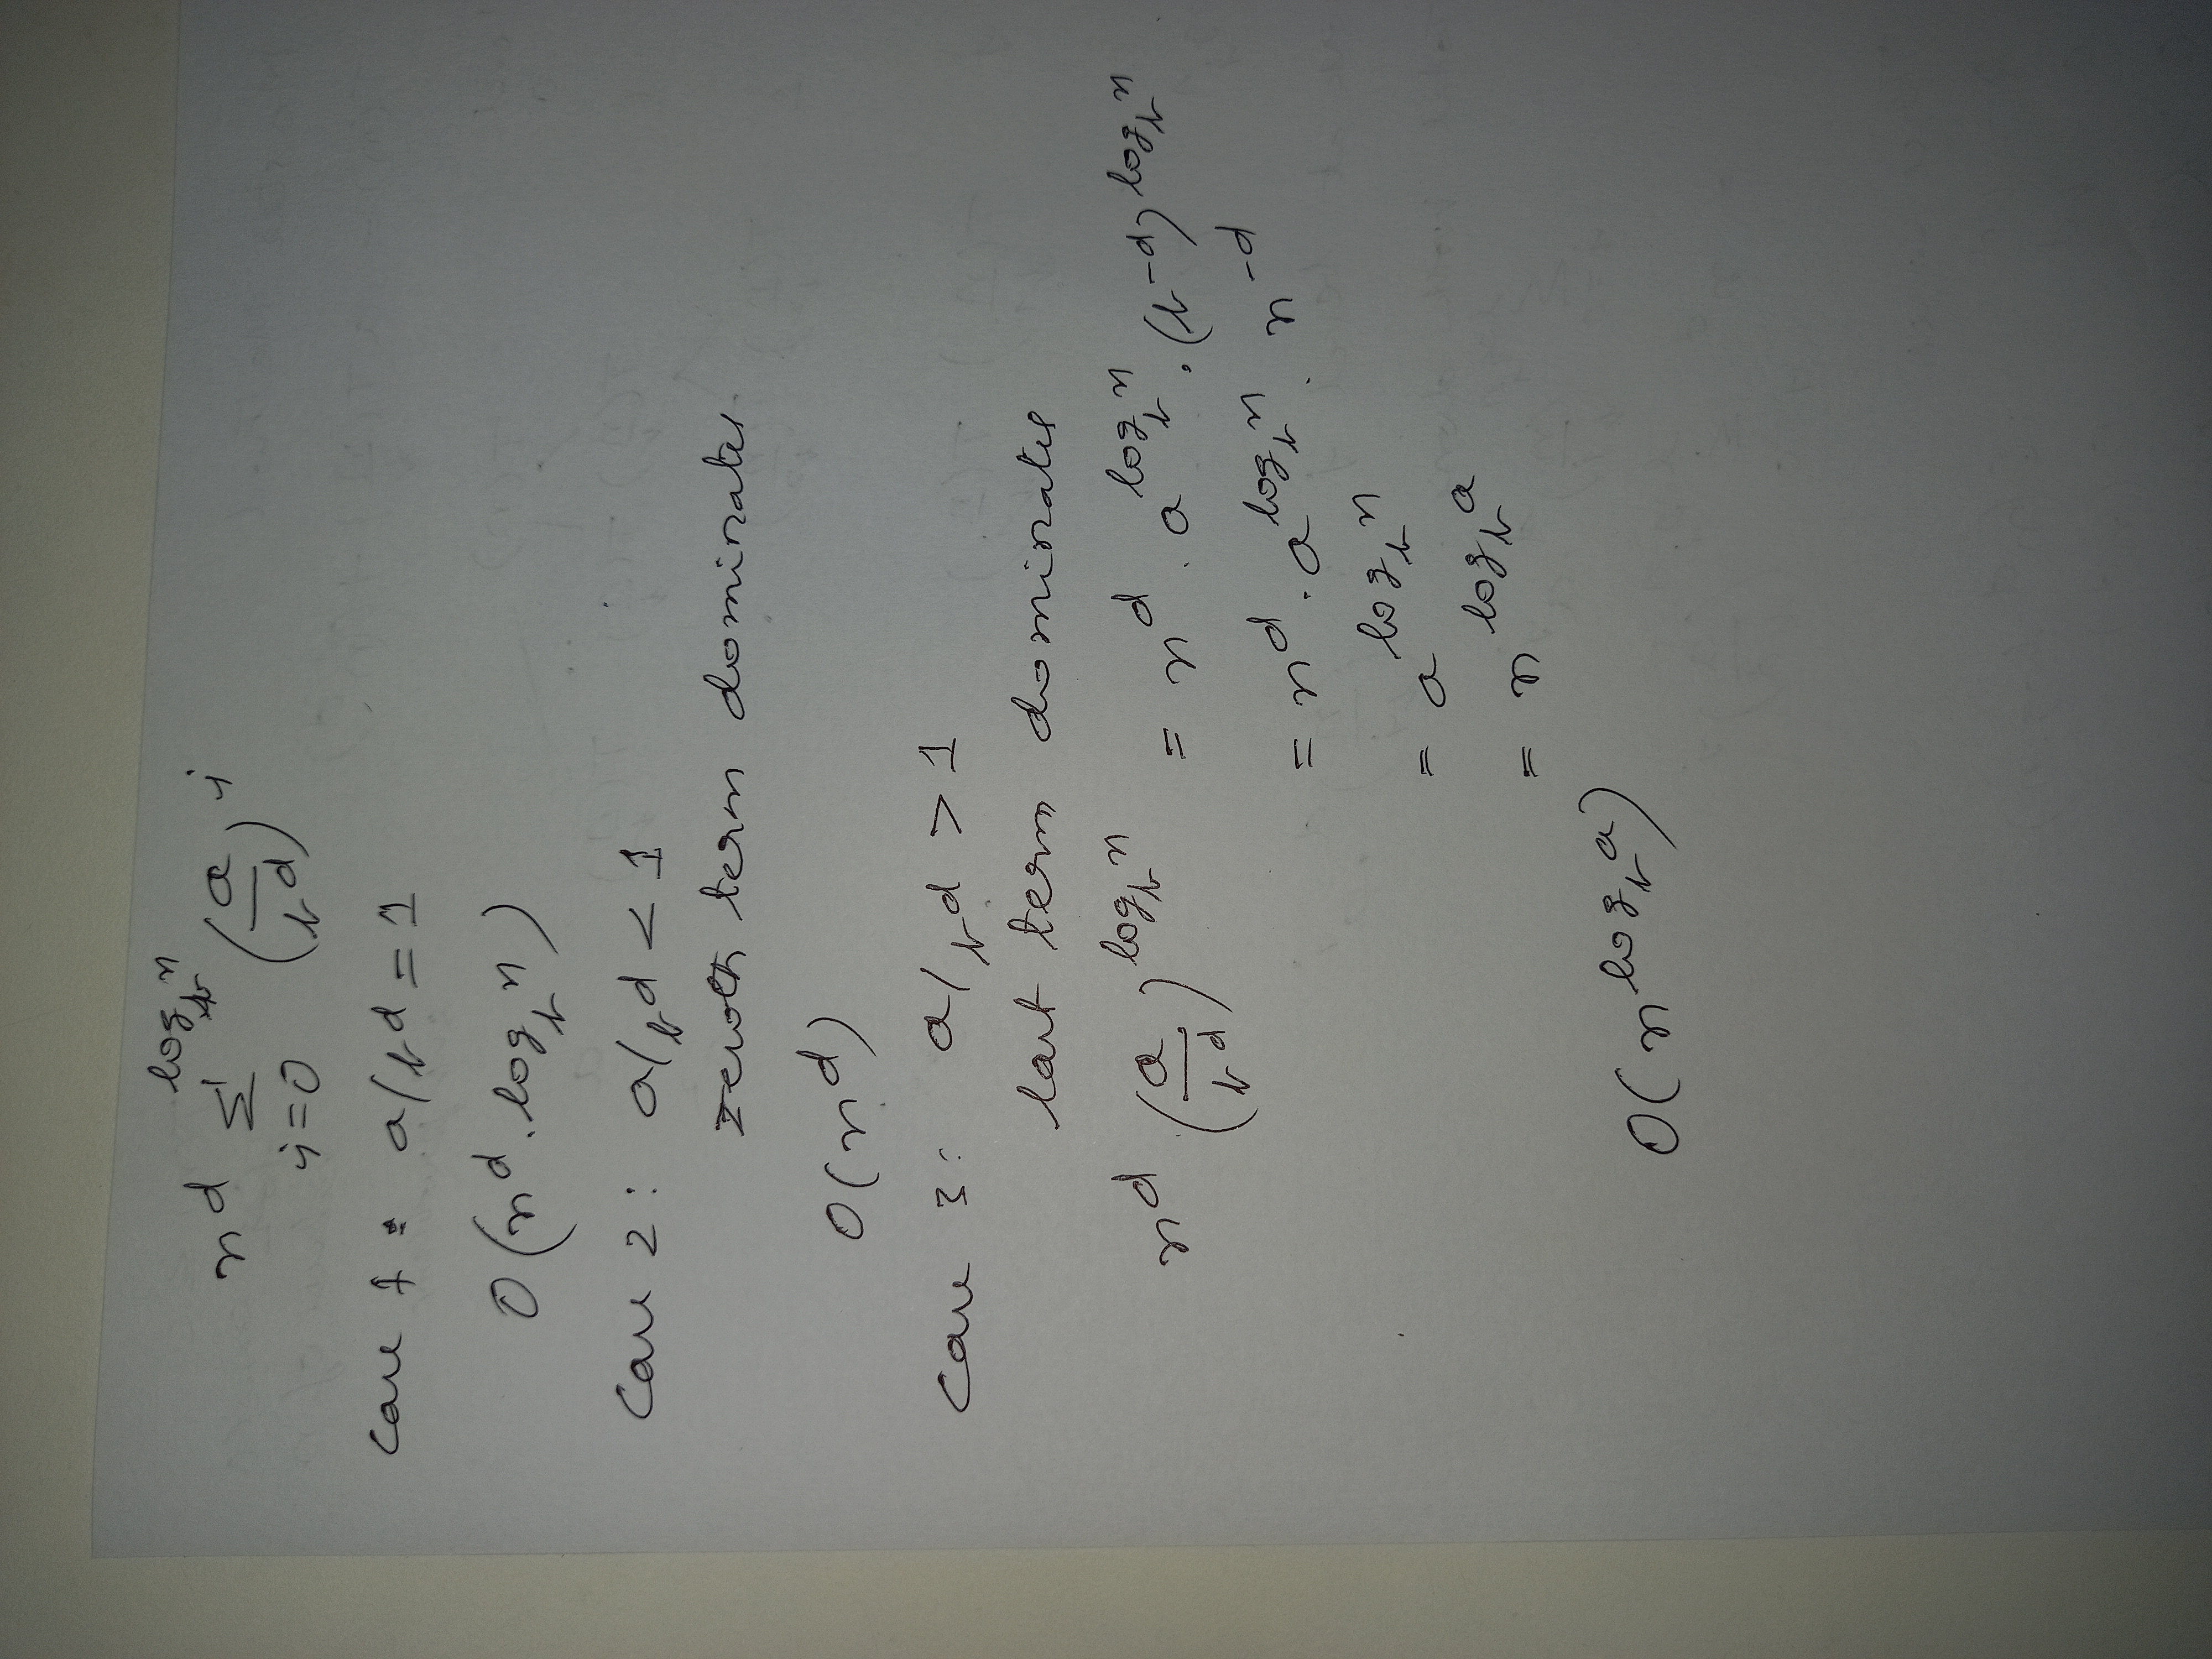 n^d Σ_{i=0}^{log_b n} (a/b^d)^i
Case 1: a/b^d = 1
O(n^d . log_b n)
Case 2: a/b^d < 1
zeroth term dominates
O(n^d)
Case 3: a/b^d > 1
last term dominates
n^d . (a/b^d)^{log_b n} = n^d . a^{log_b n} . (b^{-d})^{log_b n}
= n^d . a^{log_b n} . n^{-d}
= a^{log_b n}
= n^{log_b a}
O(n^{log_b a})